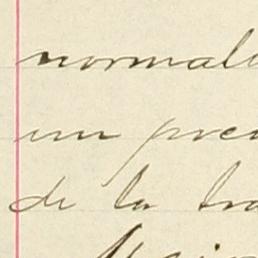 normal
un pre
de la tra